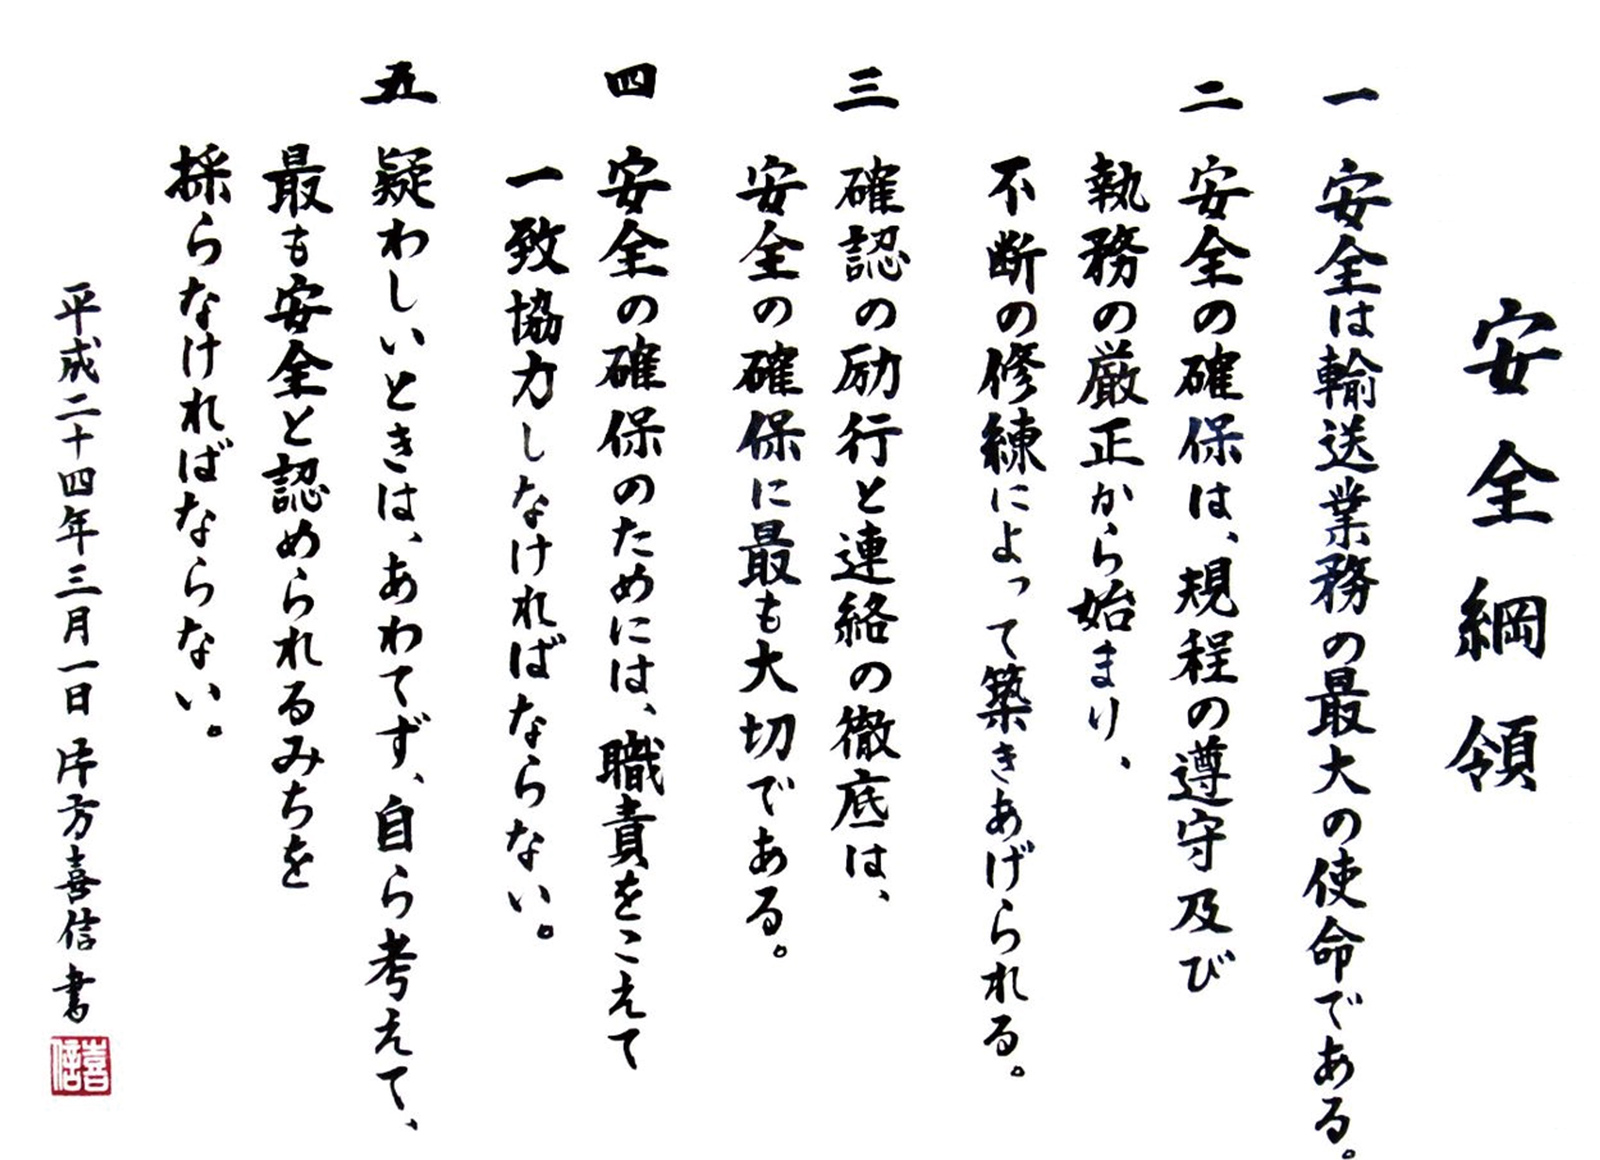 安全綱領
一 安全は輸送業務の最大の使命である。
二 安全の確保は、規程の遵守及び
執務の厳正から始まり、
不断の修練によって築きあげられる。
三 確認の励行と連絡の徹底は、
安全の確保に最も大切である。
四 安全の確保のためには、職責をこえて
一致協力しなければならない。
五 疑わしいときは、あわてず、自ら考えて、
最も安全と認められるみちを
採らなければならない。
平成二十四年三月一日 片方喜信書
喜信